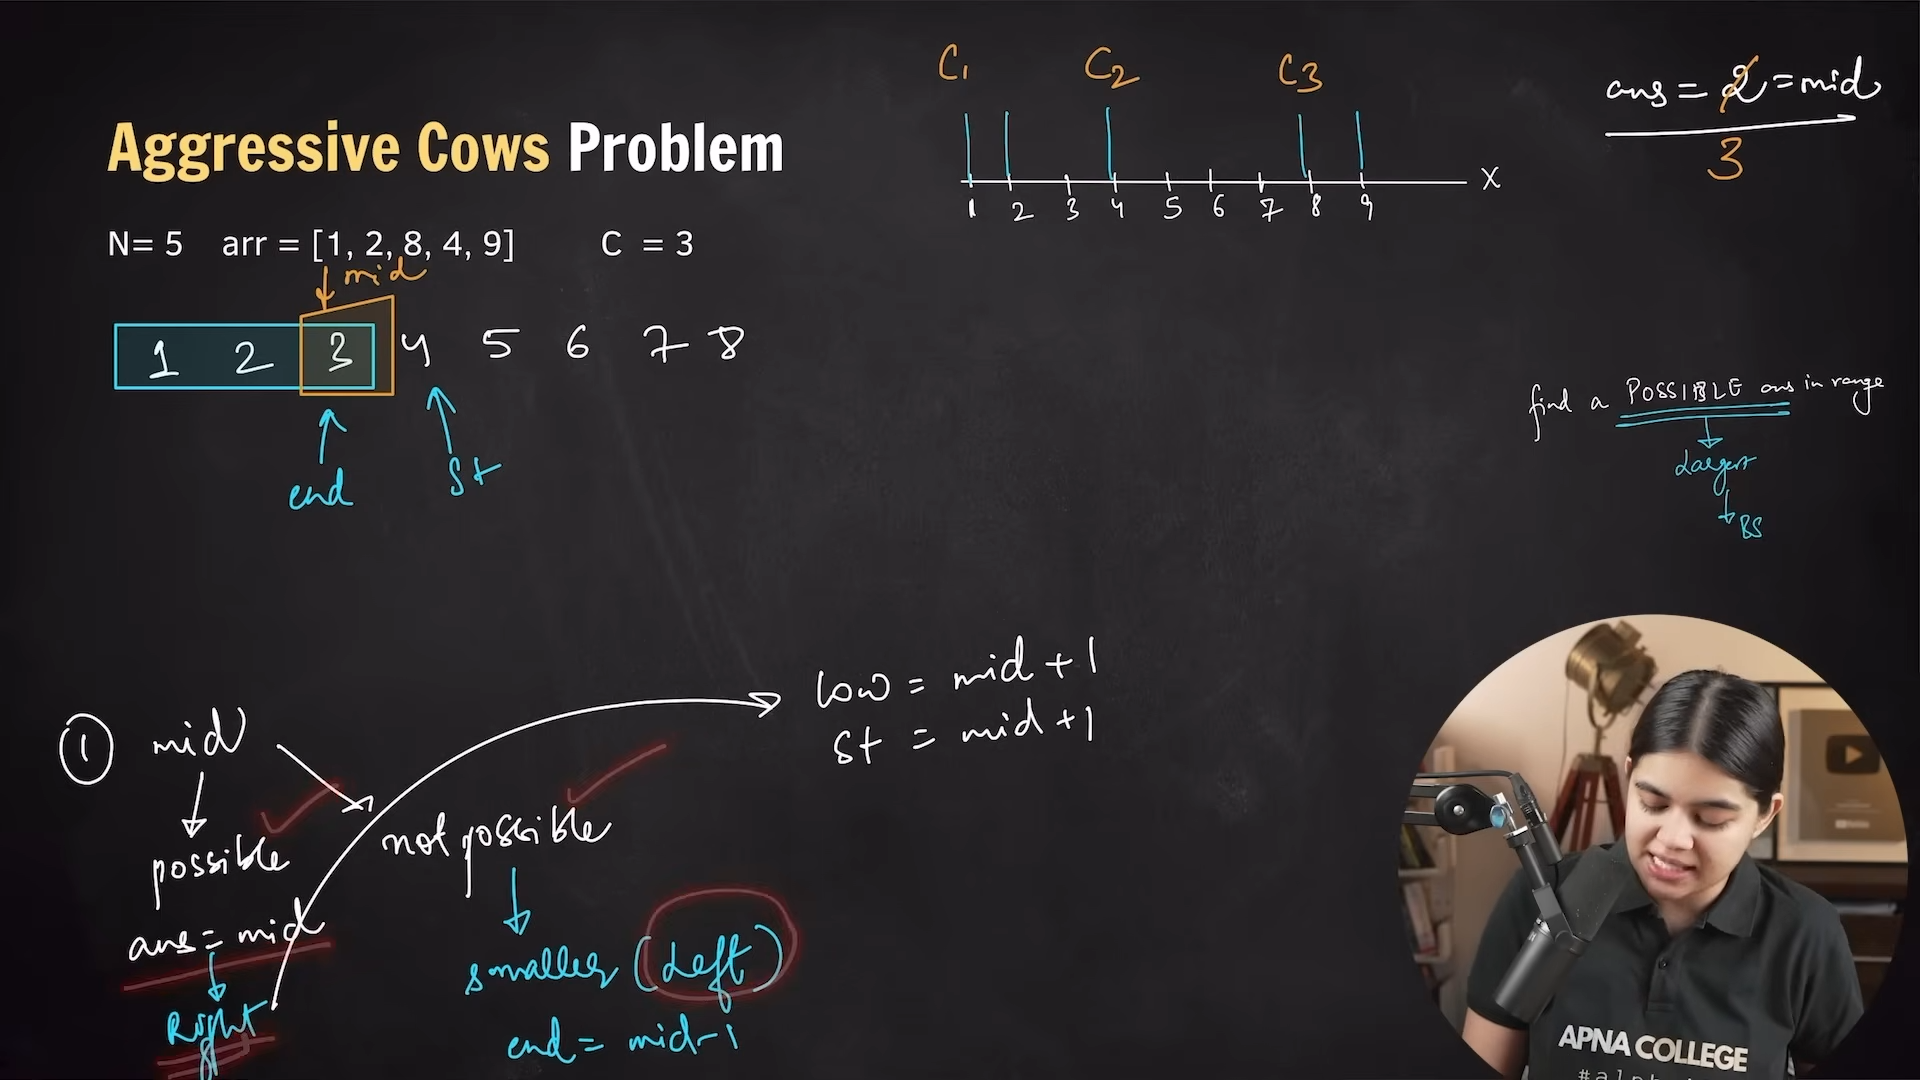 Aggressive Cows Problem
N= 5 arr = [1, 2, 8, 4, 9] C = 3
mid
1 2 3 4 5 6 7 8
end
St
C1 C2 C3
X
1 2 3 4 5 6 7 8 9
ans = 2 = mid
3
find a POSSIBLE ans in range
Largest
BS
1 mid
possible
ans = mid
Right
not possible
smaller (Left)
end = mid-1
low = mid + 1
St = mid + 1
APNA COLLEGE